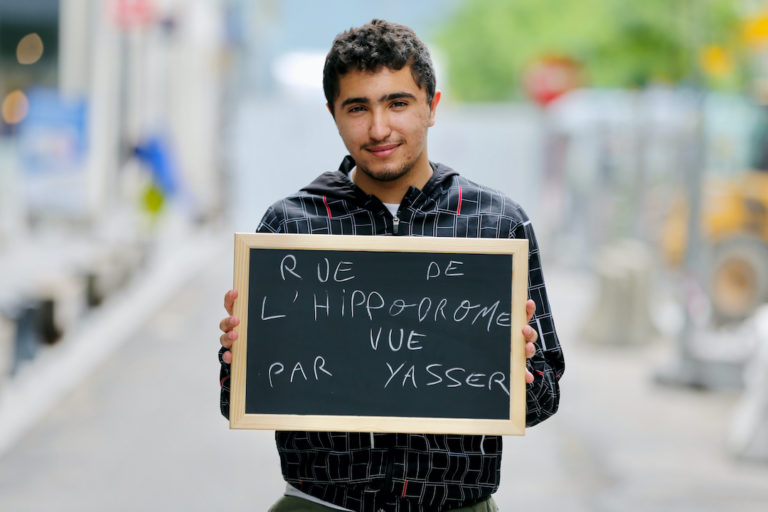 RUE DE
L'HIPPODROME
VUE
PAR YASSER